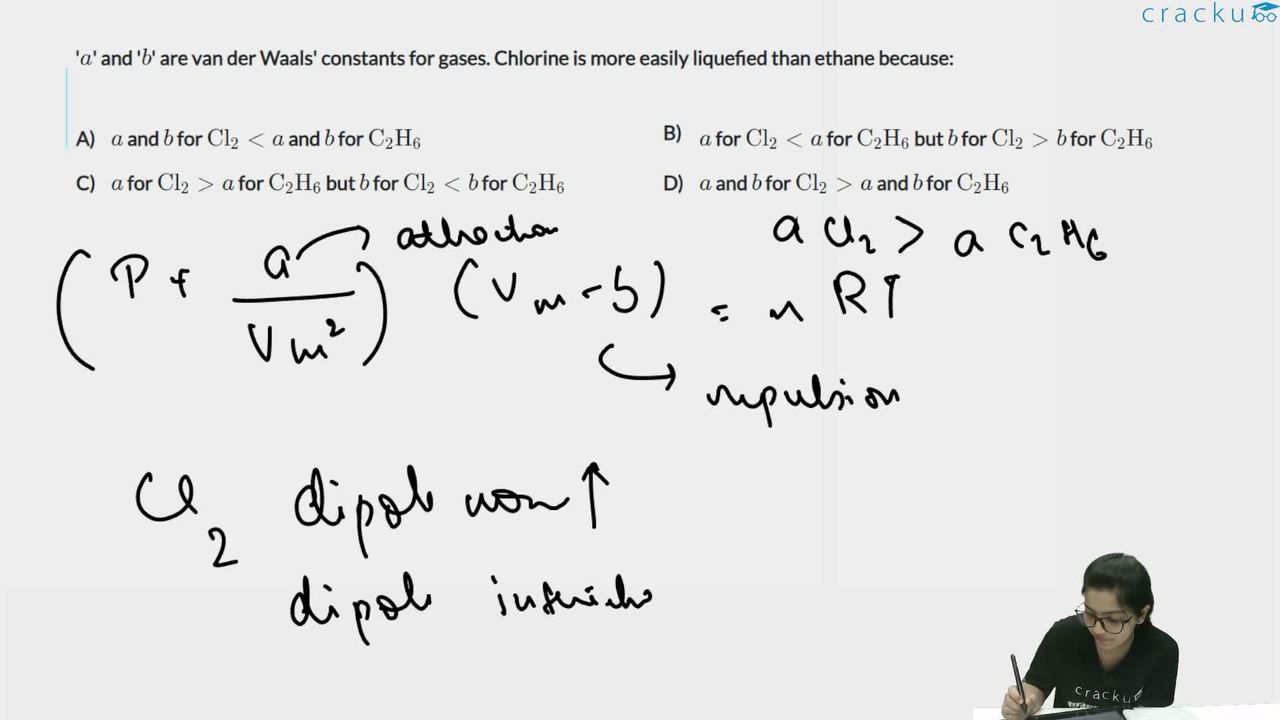 cracku
'a' and 'b' are van der Waals' constants for gases. Chlorine is more easily liquefied than ethane because:
A) a and b for Cl₂ < a and b for C₂H₆
B) a for Cl₂ < a for C₂H₆ but b for Cl₂ > b for C₂H₆
C) a for Cl₂ > a for C₂H₆ but b for Cl₂ < b for C₂H₆
D) a and b for Cl₂ > a and b for C₂H₆
a Cl₂ > a C₂H₆
attraction
(P + a/Vm²) (Vm - b) = n RT
repulsion
Cl₂ dipole mom ↑
dipole
cracku